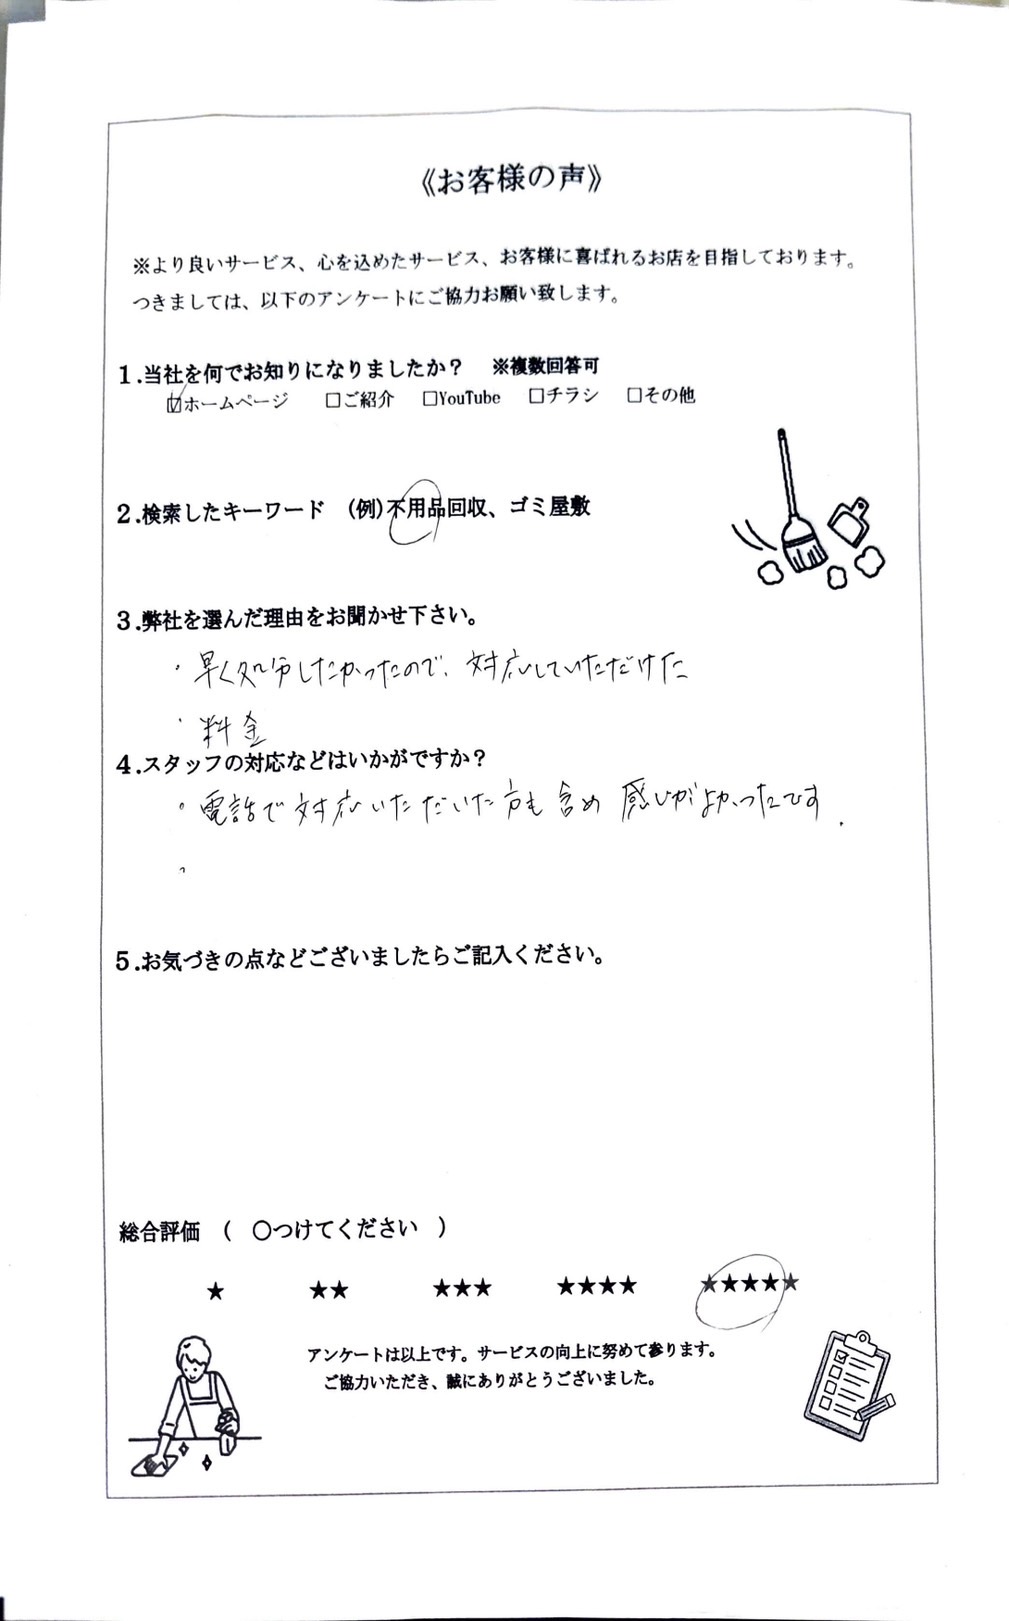 《お客様の声》
※より良いサービス、心を込めたサービス、お客様に喜ばれるお店を目指しております。
つきましては、以下のアンケートにご協力お願い致します。
1.当社を何でお知りになりましたか？　※複数回答可
☑ホームページ　□ご紹介　□YouTube　□チラシ　□その他
2.検索したキーワード　(例)不用品回収、ゴミ屋敷
3.弊社を選んだ理由をお聞かせ下さい。
・早く処分したかったので、対応していただけた
・料金
4.スタッフの対応などはいかがですか？
・電話で対応いただいた方も含め 感じがよかったです.
5.お気づきの点などございましたらご記入ください。
総合評価　(　○つけてください　)
★　★★　★★★　★★★★　★★★★★
アンケートは以上です。サービスの向上に努めて参ります。
ご協力いただき、誠にありがとうございました。